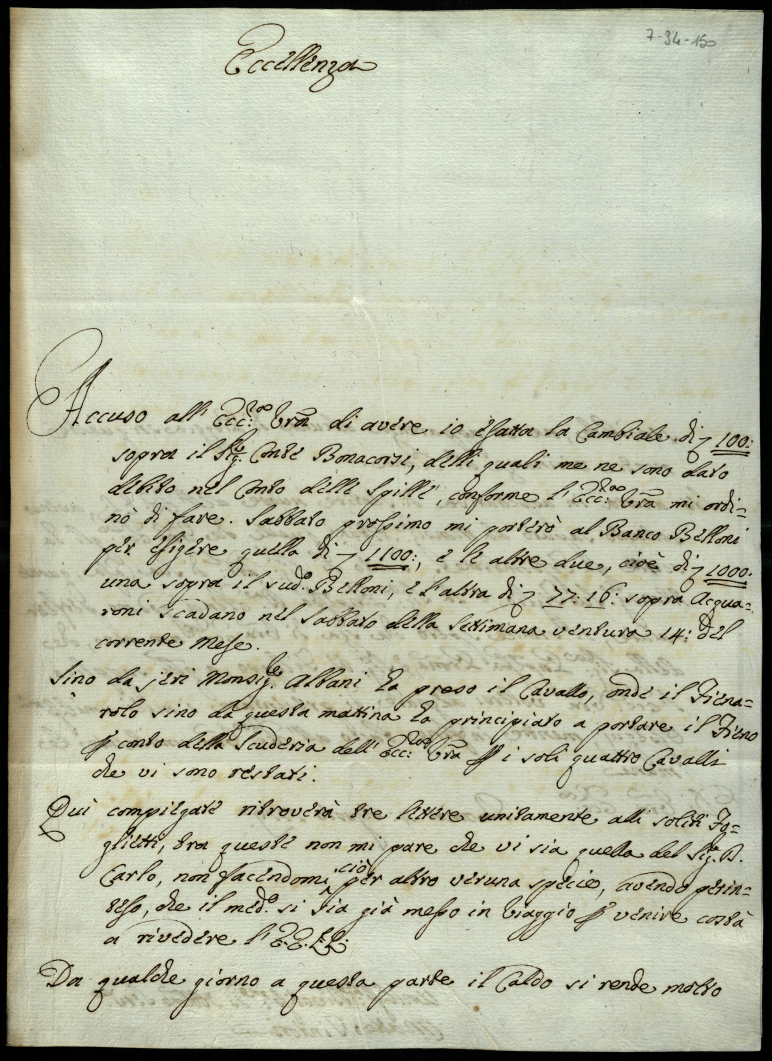 7-34-150
Eccellenza
Accuso all' Ecc:za Vra di avere io esatta la Cambiale di 100:
sopra il Sig.r Conte Bonacorsi, delli quali me ne sono dato
debito nel Conto delle Spille, conforme l'Ecc:za Vra mi ordi=
nò di fare. Sabbato prossimo mi porterò al Banco Belloni
per esigere quella di 1100:, e le altre due, cioè di 1000:
una sopra il sud.o Belloni, e l'altra di 77:16: sopra Acqua=
roni scadano nel Sabbato della Settimana ventura 14: del
corrente Mese.
Sino da jeri Monsig.re Albani ha preso il Cavallo, onde il Fiena=
rolo sino da questa mattina ha principiato a portare il Fieno
p conto della Scuderia dell' Ecc:za Vra p i soli quattro Cavalli
che vi sono restati.
Qui compiegate ritroverà tre lettere unitamente alli soliti Fo=
glietti, tra queste non mi pare che vi sia quella del Sig.r D.
Carlo, non facendomi ciò per altro veruna specie, avendo perin=
teso, che il med.o si sia già messo in Viaggio p venire costà
a rivedere l'E.E. LL:
Da qualche giorno a questa parte il Caldo si rende molto